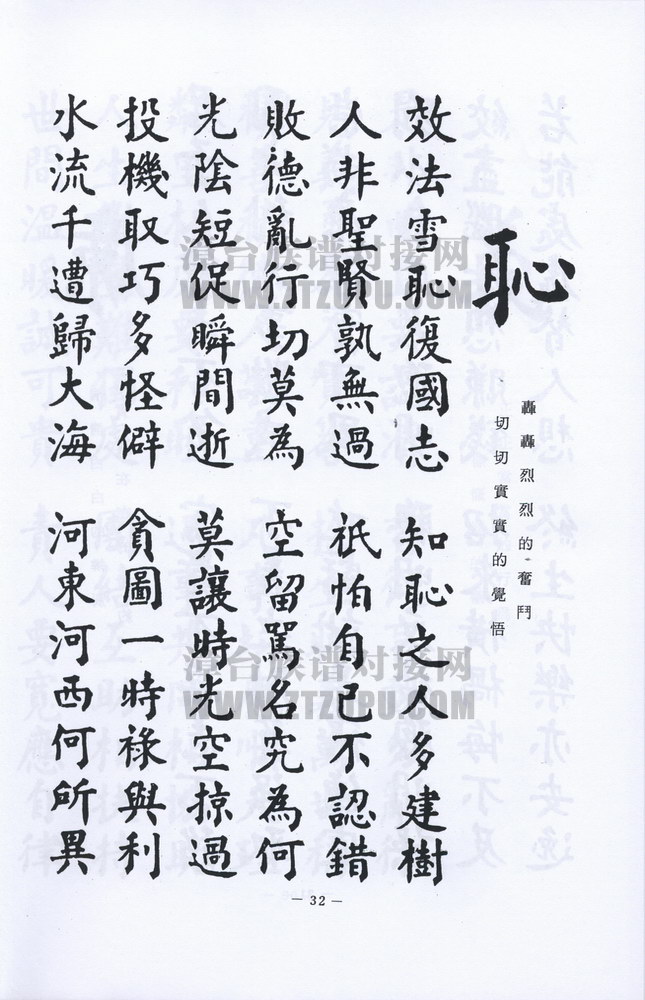 恥
轟轟烈烈的奮鬥
切切實實的覺悟
效法雪恥復國志 知恥之人多建樹
人非聖賢孰無過 祇怕自己不認錯
敗德亂行切莫為 空留罵名究為何
光陰短促瞬間逝 莫讓時光空掠過
投機取巧多怪僻 貪圖一時祿與利
水流千遭歸大海 河東河西何所異
漳台族谱对接网
WWW.ZTZUPU.COM
漳台族谱对接网
WWW.ZTZUPU.COM
— 32 —